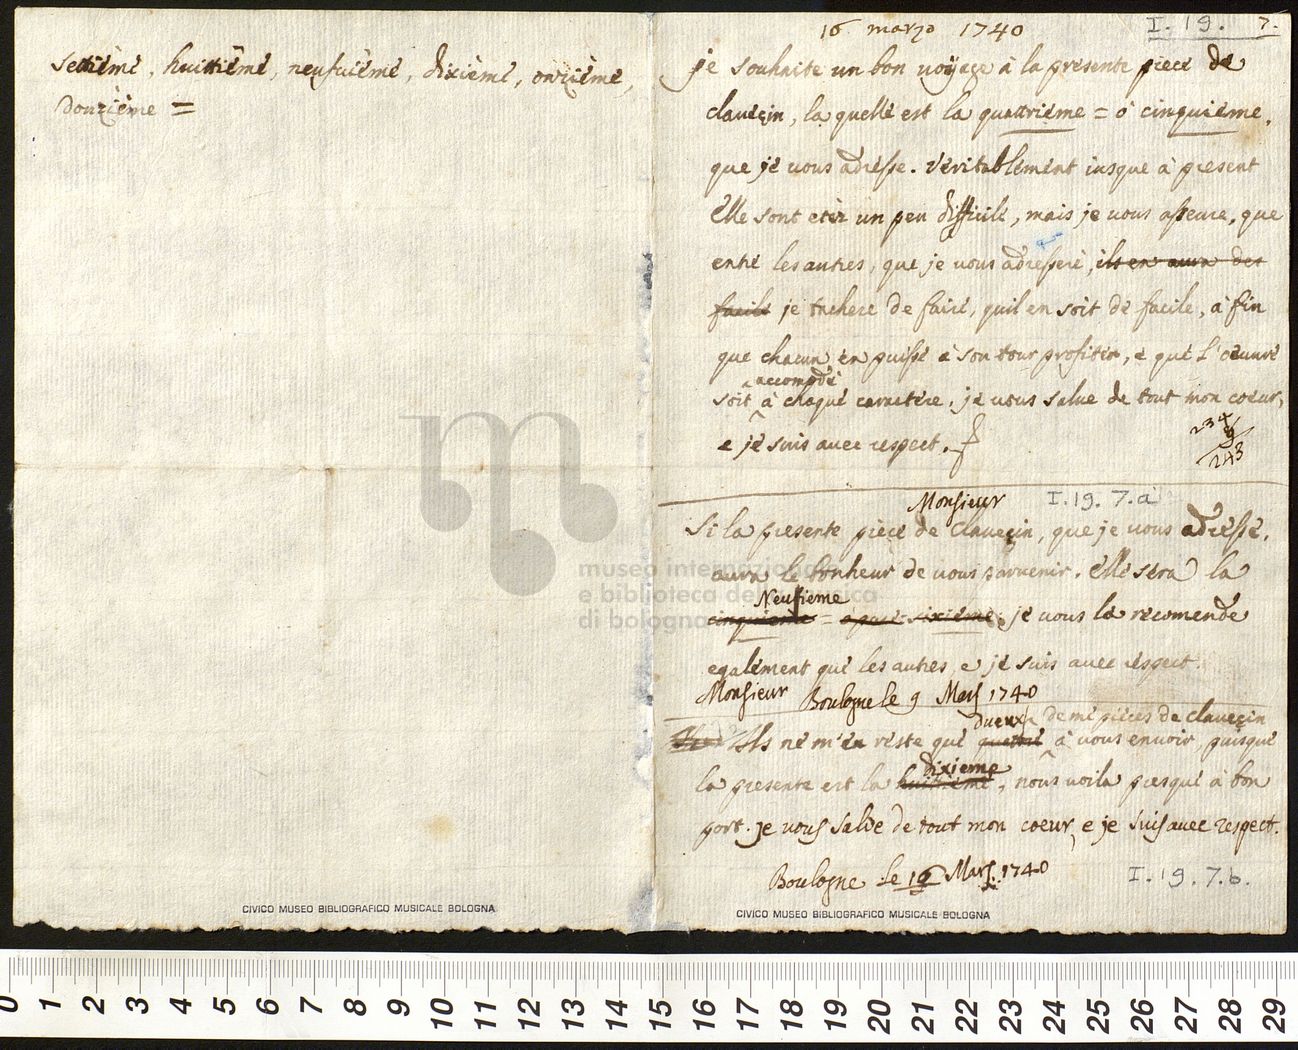 settiéme, huittiéme, neufuiéme, dixiéme, onziéme,
Douziéme =
CIVICO MUSEO BIBLIOGRAFICO MUSICALE BOLOGNA
16 marzo 1740
I. 19. 7.
je souhaite un bon voyage à la presente piece de
clavecin, la quelle est la quattriéme = ó cinquiéme,
que je vous adresse. Véritablement iusque à present
Elle sont etéz un peu difficile, mais je vous asseure, que
entre les autres, que je vous adresseré, ils en aura des
facile je tachere de faire, quil en soit de facile, à fin
que chacun en puisse à son tour profiter, e que l'oeuvre
accomodé
soit à chaque caractére. je vous salue de tout mon coeur,
e je suis avec respect.
234
9
243
Monsieur
I. 19. 7. a
Si la presente piéce de Clavecin, que je vous adresse,
aura le bonheur de vous parvenir. Elle sera la
Neufieme
cinquieme = sixiéme. je vous la recomende
egalement que les autres, e je suis avec respect.
Monsieur Boulogne le 9 Mars 1740
dueux de mé piéces de clavecin
Ils ne m'en reste que quattre à vous envoir, puisque
dixieme
la presente est la huittiéme, nous voila presque à bon
port. je vous salue de tout mon coeur, e je suis avec respect.
Boulogne le 16 Mars. 1740
I. 19. 7. b.
CIVICO MUSEO BIBLIOGRAFICO MUSICALE BOLOGNA
museo internazionale
e biblioteca della musica
di bologna
0 1 2 3 4 5 6 7 8 9 10 11 12 13 14 15 16 17 18 19 20 21 22 23 24 25 26 27 28 29